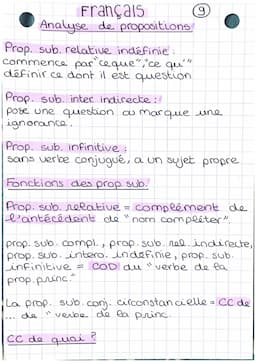 Français
9
Analyse de propositions
Prop. sub. relative indéfinie :
commence par "ce que", "ce qu'"
définir ce dont il est question
Prop. sub. inter indirecte :
pose une question ou marque une
ignorance.
Prop. sub. infinitive :
sans verbe conjugué, a un sujet propre
Fonctions des prop sub.
Prop. sub. relative = complément de
l'antécédent de "nom compléter".
prop. sub. compl., prop. sub. rel. indirecte,
prop. sub. intero. indéfinie, prop. sub.
infinitive = COD du "verbe de la
prop. princ."
La prop. sub. conj. circonstancielle = CC de
... du "verbe de la princ.
CC de quoi ?